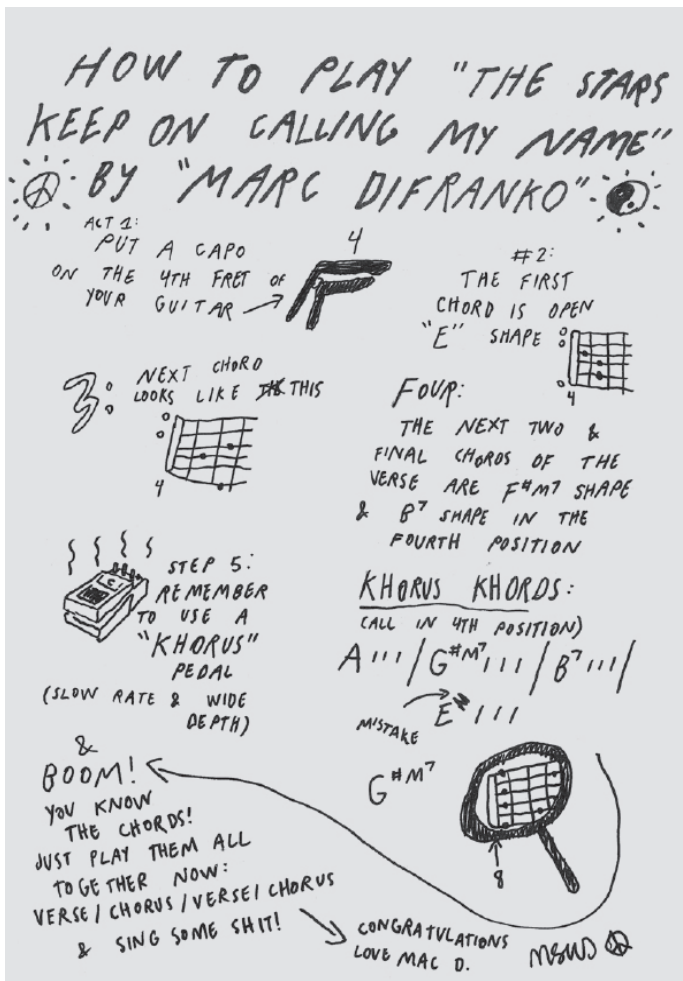 HOW TO PLAY "THE STARS
KEEP ON CALLING MY NAME"
BY "MARC DIFRANKO"
ACT 1:
PUT A CAPO
ON THE 4TH FRET OF
YOUR GUITAR
4
#2:
THE FIRST
CHORD IS OPEN
"E" SHAPE
4
3:
NEXT CHORD
LOOKS LIKE THIS
4
FOUR:
THE NEXT TWO &
FINAL CHORDS OF THE
VERSE ARE F#M7 SHAPE
& B7 SHAPE IN THE
FOURTH POSITION
STEP 5:
REMEMBER
TO USE A
"KHORUS"
PEDAL
(SLOW RATE & WIDE
DEPTH)
KHORUS KHORDS:
(ALL IN 4TH POSITION)
A ''' / G#M7 ''' / B7 ''' /
E '''
MISTAKE
G#M7
8
&
BOOM!
YOU KNOW
THE CHORDS!
JUST PLAY THEM ALL
TOGETHER NOW:
VERSE / CHORUS / VERSE / CHORUS
& SING SOME SHIT!
CONGRATULATIONS
LOVE MAC D.